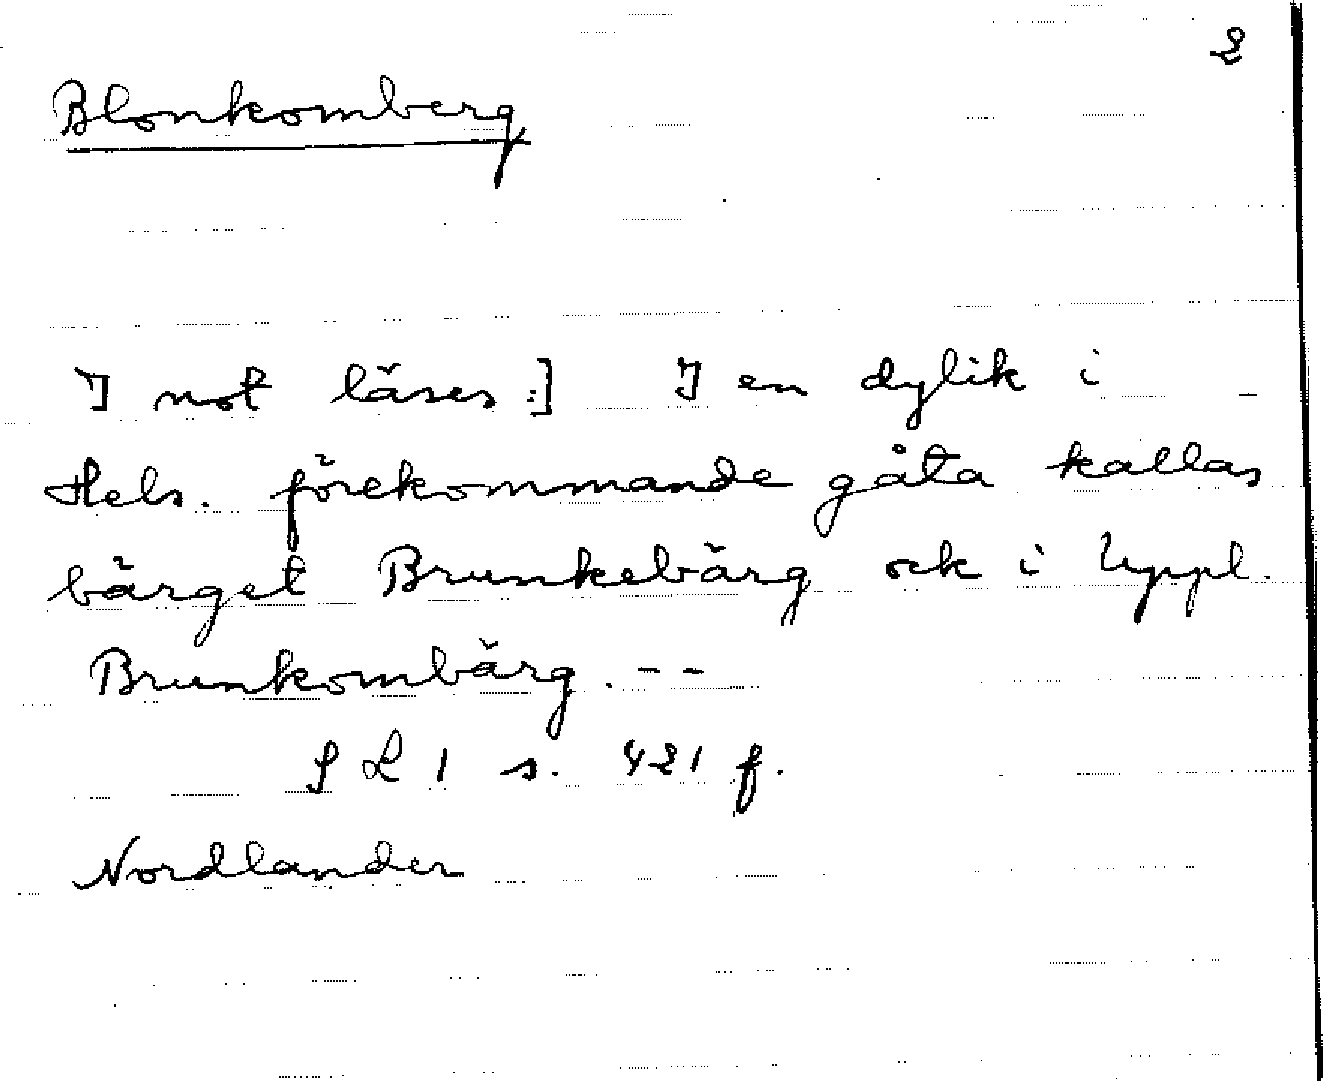 2
Blonkomberg
I not läses:] I en dylik i
Hels. förekommande gåta kallas
bärget Brunkebärg ock i Uppl.
Brunkombärg. - -
SL 1 s. 421 f.
Nordlander